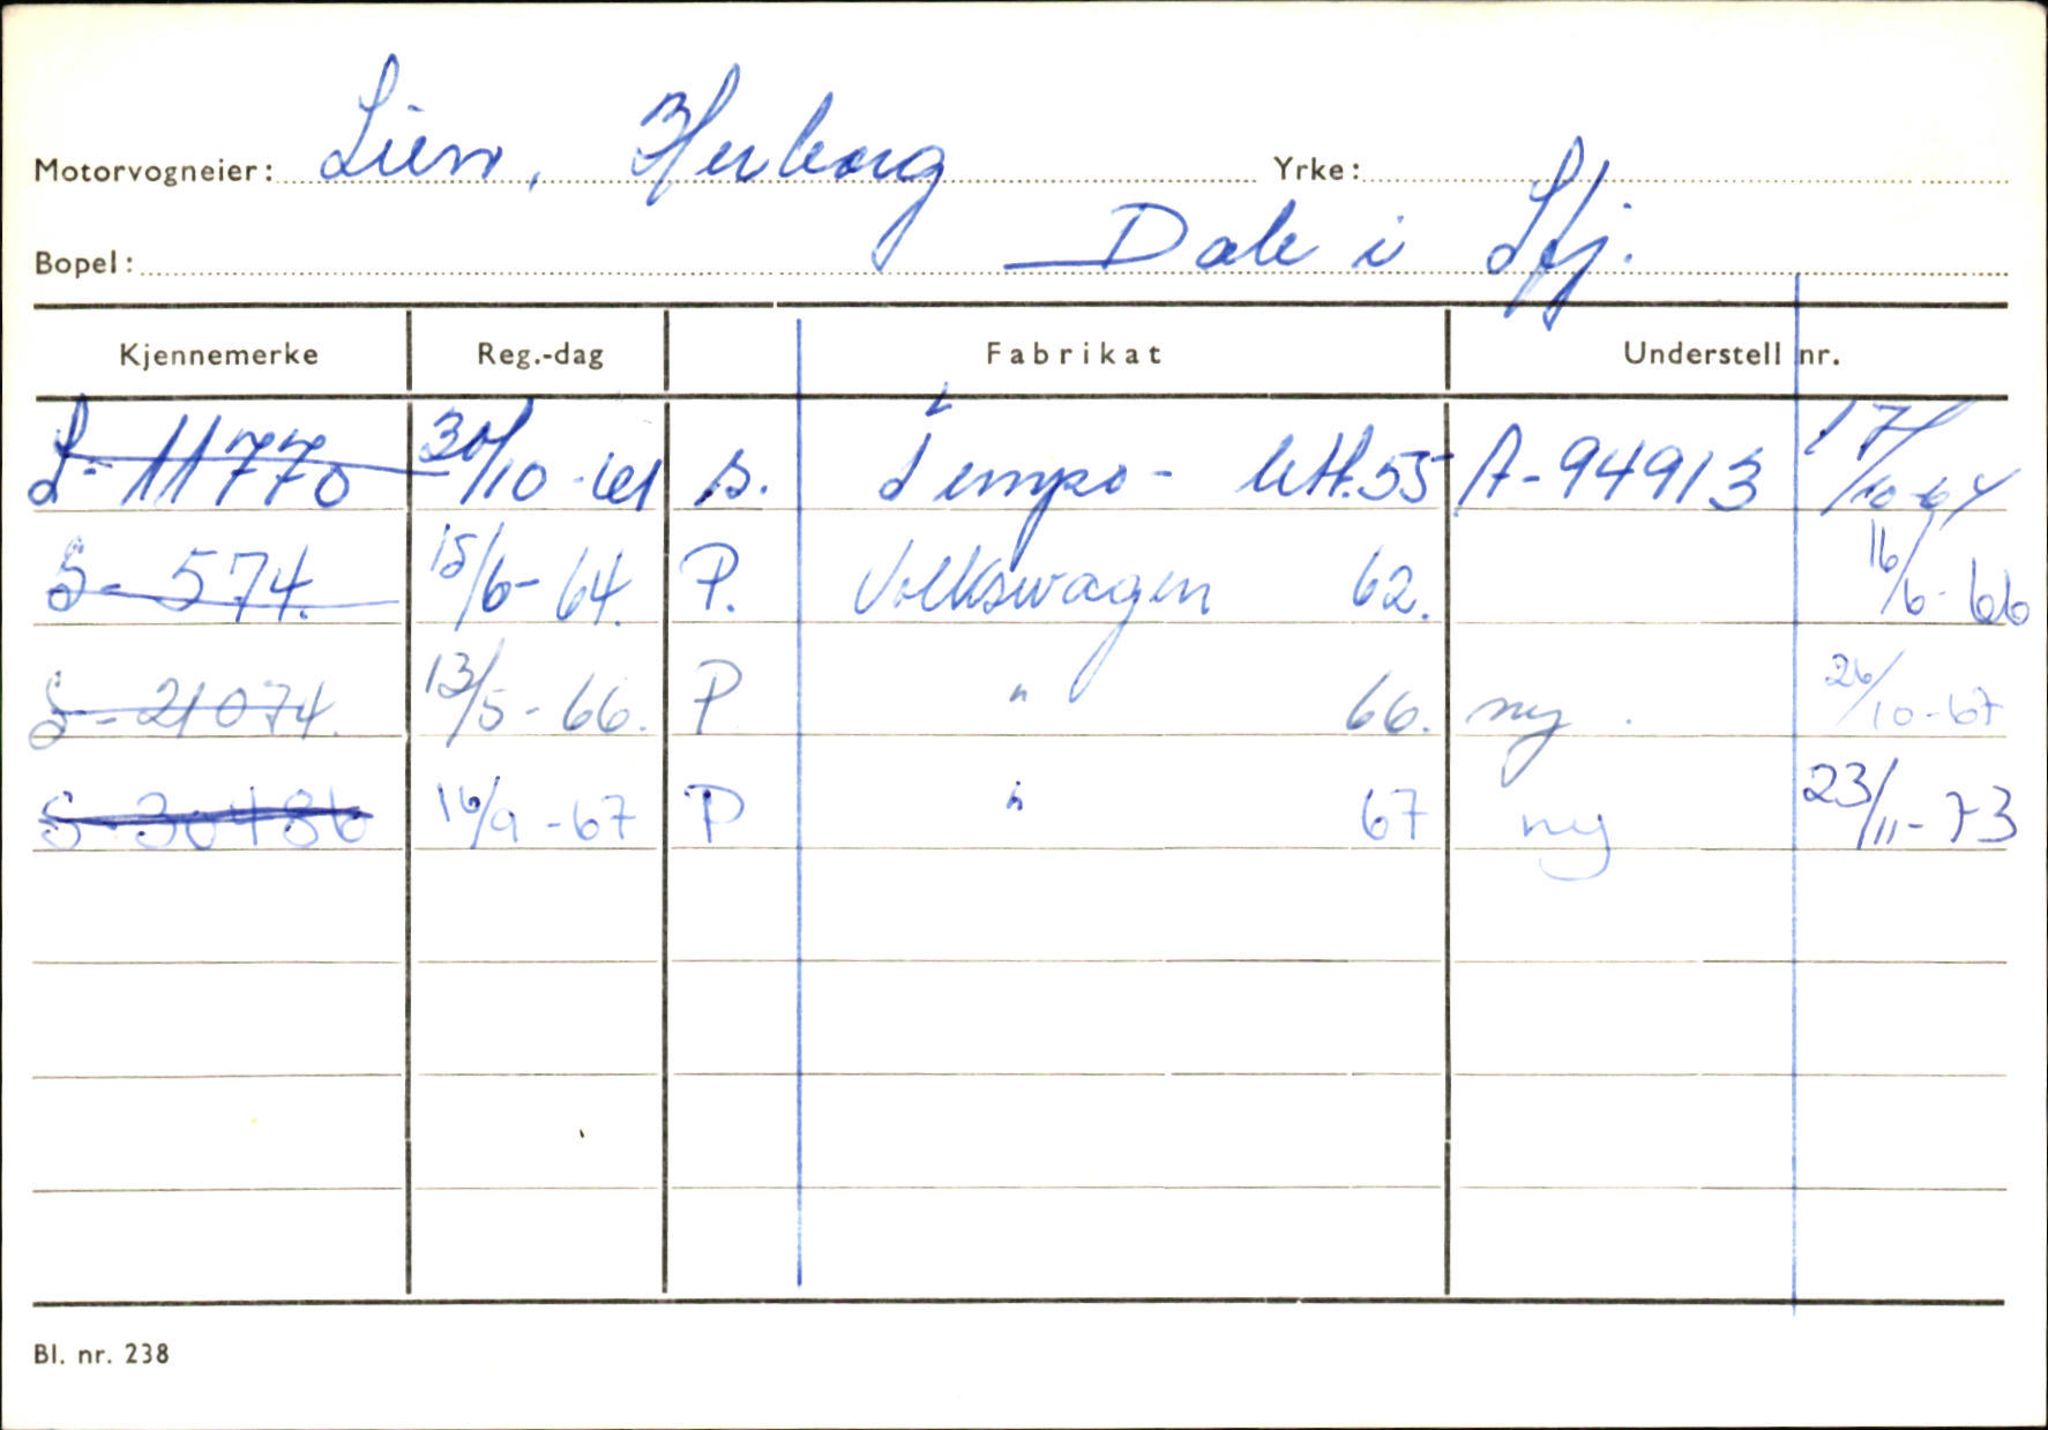 Motorvogneier: Lien, Herborg Yrke:
Bopel: Dale i Sfj.
Kjennemerke Reg.-dag Fabrikat Understell nr.
S-11770 30/10-61 s. Tempo - lett. 55 A-94913 17/10-64
S-574. 15/6-64. P. Volkswagen 62. 16/6-66
S-21074. 13/5-66. P " 66. ny. 26/10-67
S-30486 16/9-67 P " 67 ny 23/11-73
Bl. nr. 238